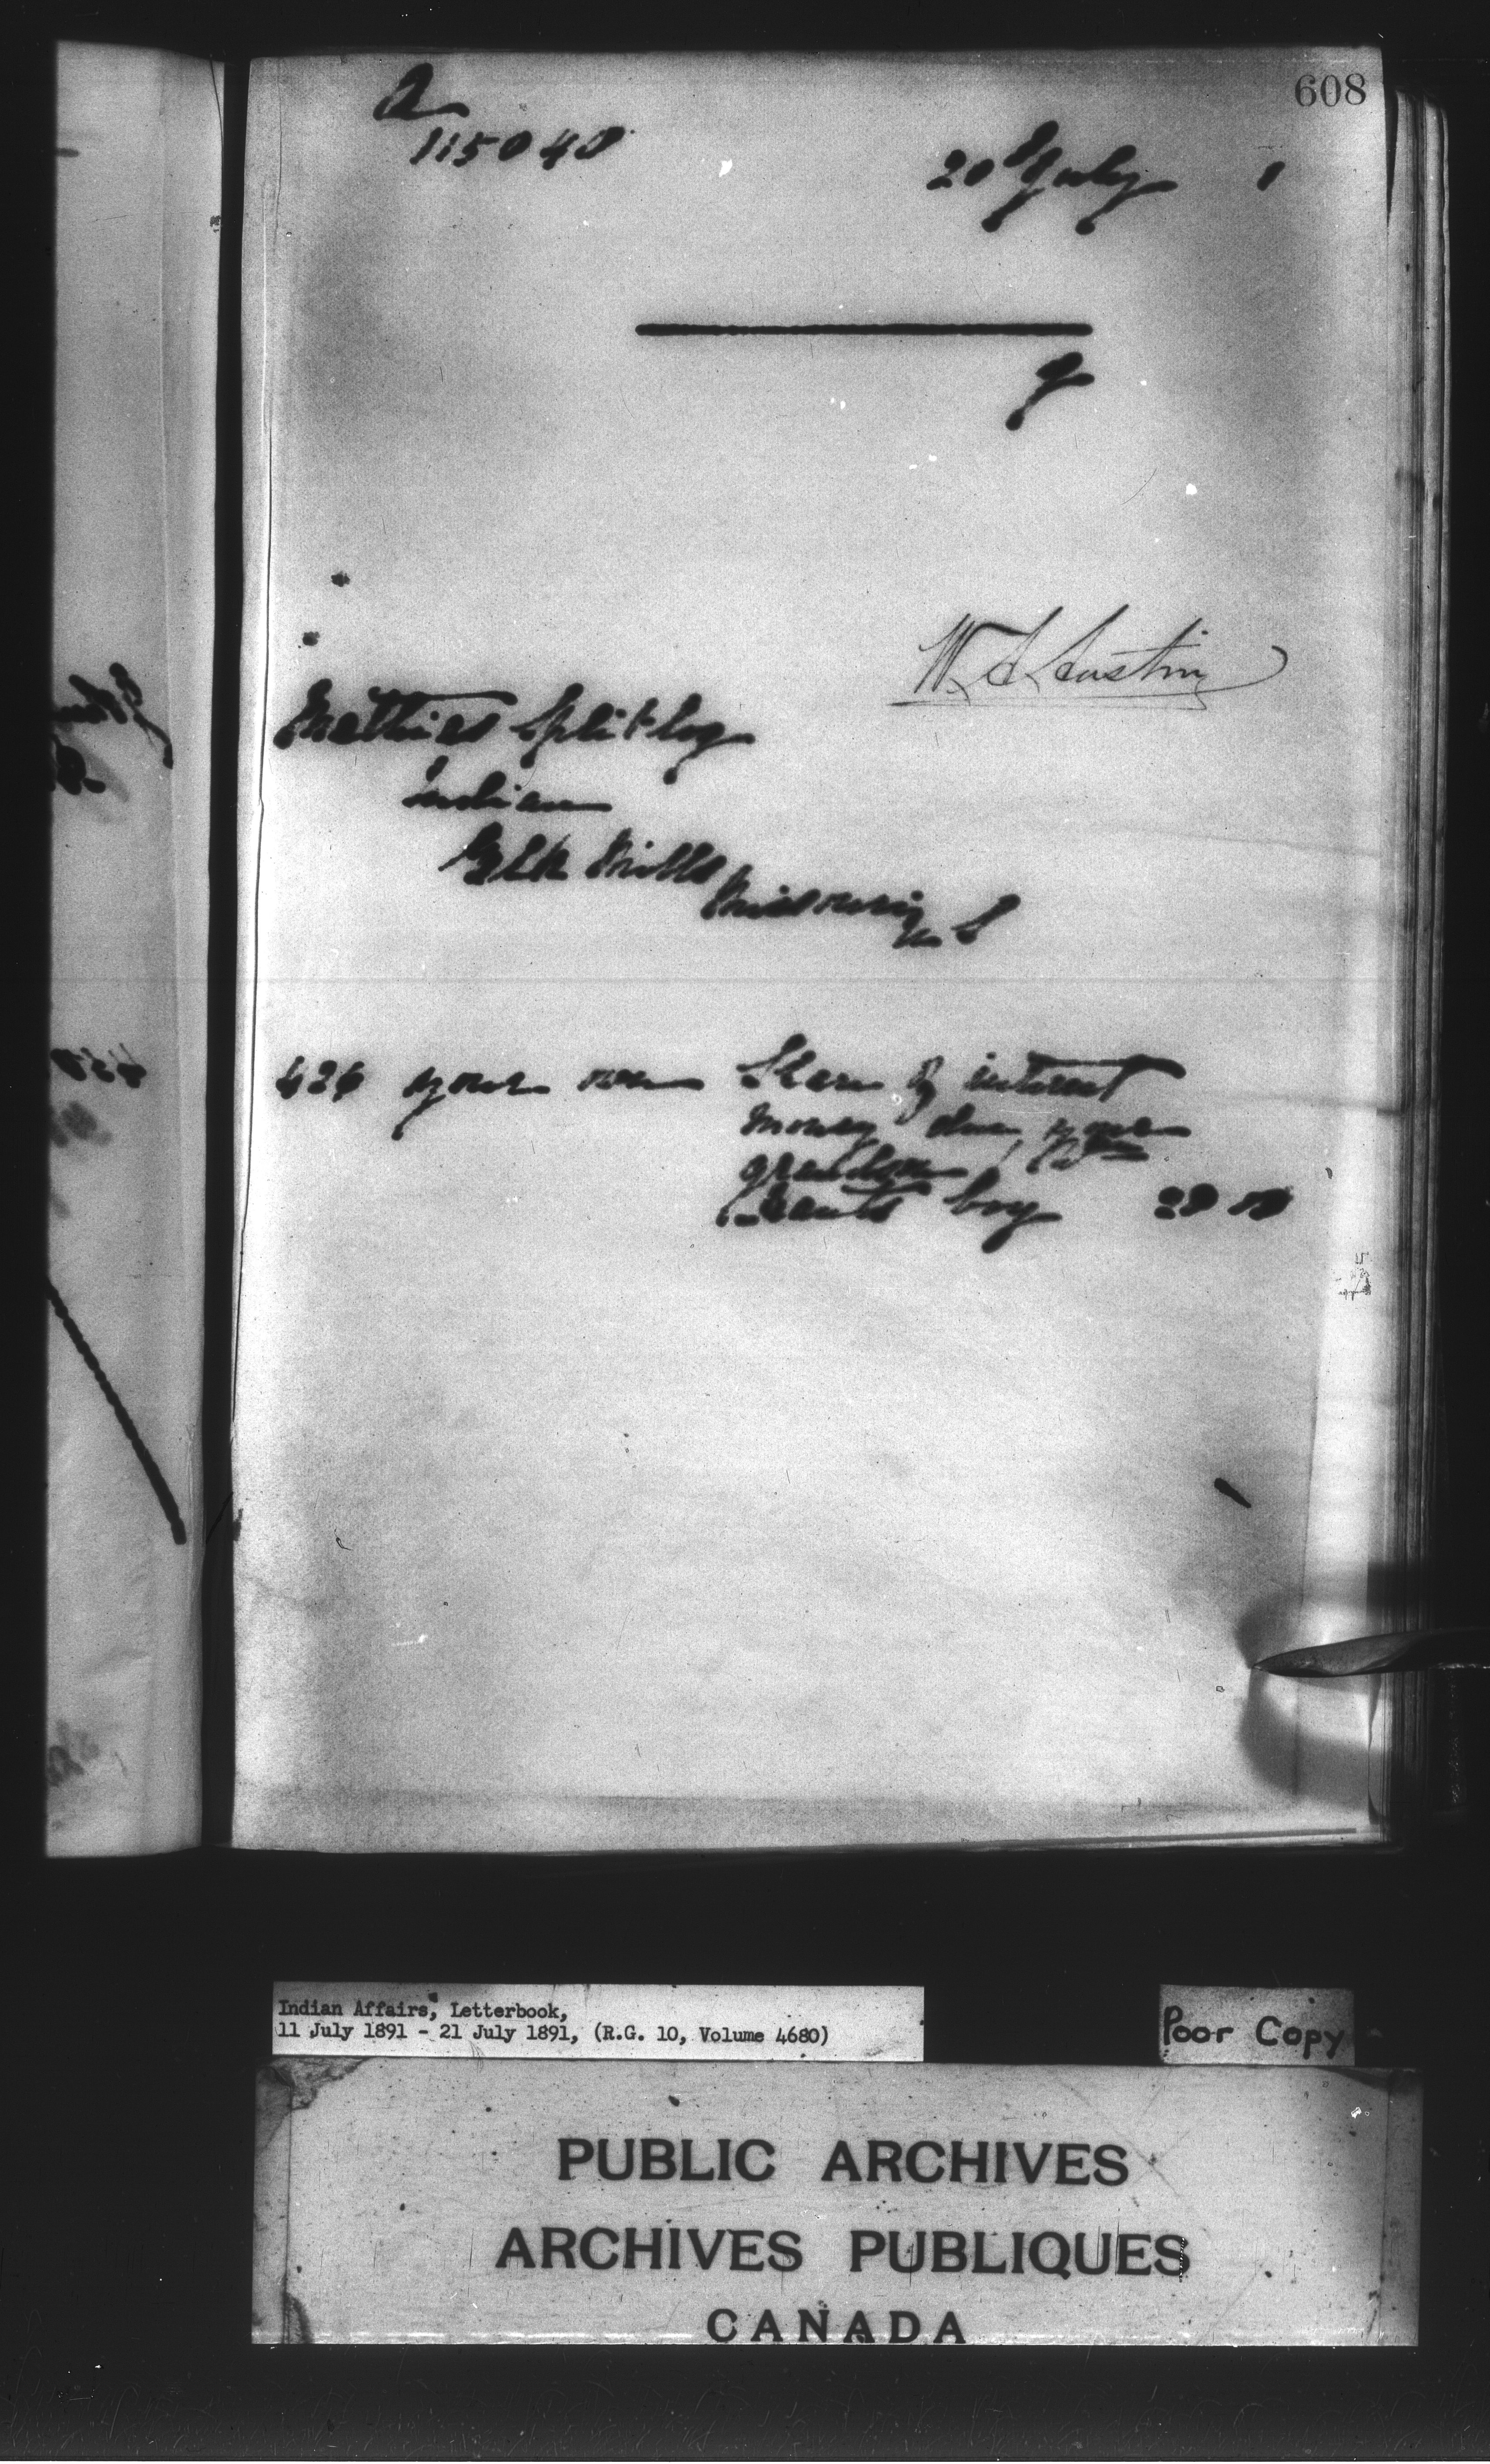 608
A
115040
20 July 1
W. A. Austin
Mathias Splitlog
Indian
Elk Mills
Missouri
U S
426 your own Share of interest
money due your
grandson, Wm
Grants boy
Indian Affairs, Letterbook,
11 July 1891 - 21 July 1891, (R.G. 10, Volume 4680)
Poor Copy
PUBLIC ARCHIVES
ARCHIVES PUBLIQUES
CANADA